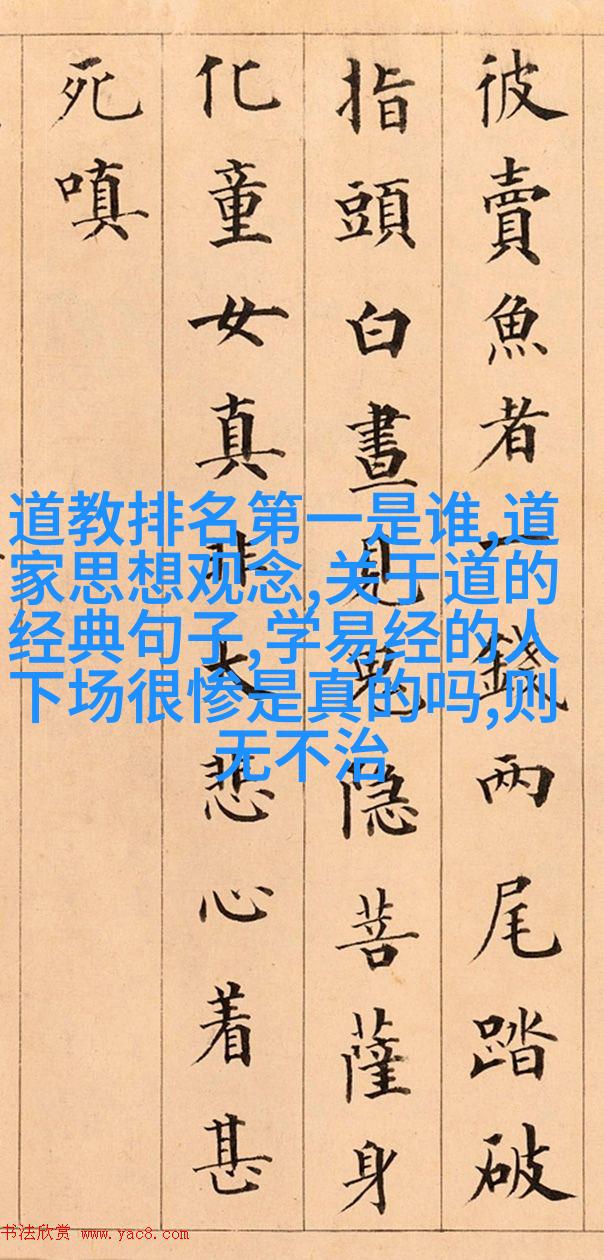 彼賣魚者一錢兩尾踏破
指頭白晝見鬼隐菩薩身
化童女真非大悲心着甚
死嗔
道教排名第一是谁,道
家思想观念,关于道的
经典句子,学易经的人
下场很惨是真的吗,则
无不治
书法欣赏 www.yac8.com